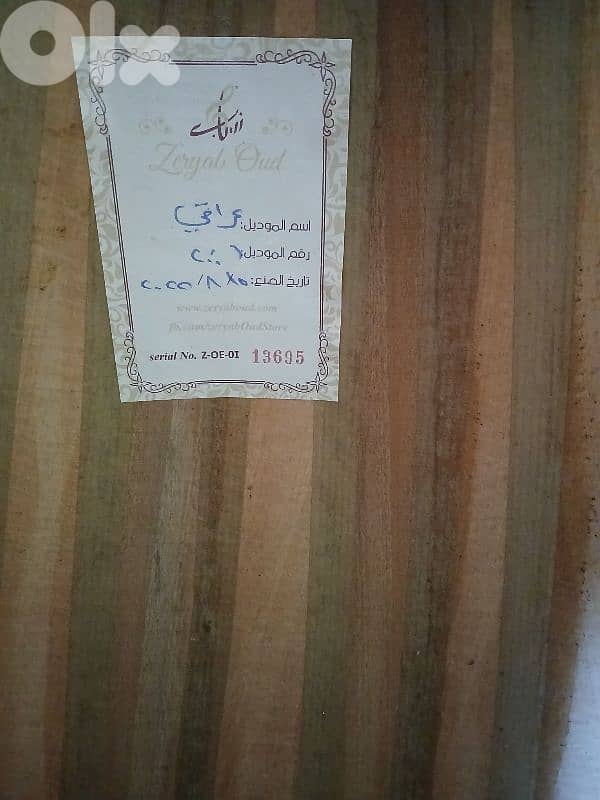 olx
زرياب
Zeryab Oud
اسم الموديل: عراقي
رقم الموديل:
تاريخ الصنع: ٢٠٢٢/٨
www.zeryaboud.com
fb.com/zeryabOudStore
serial No. Z-OE-01 13695